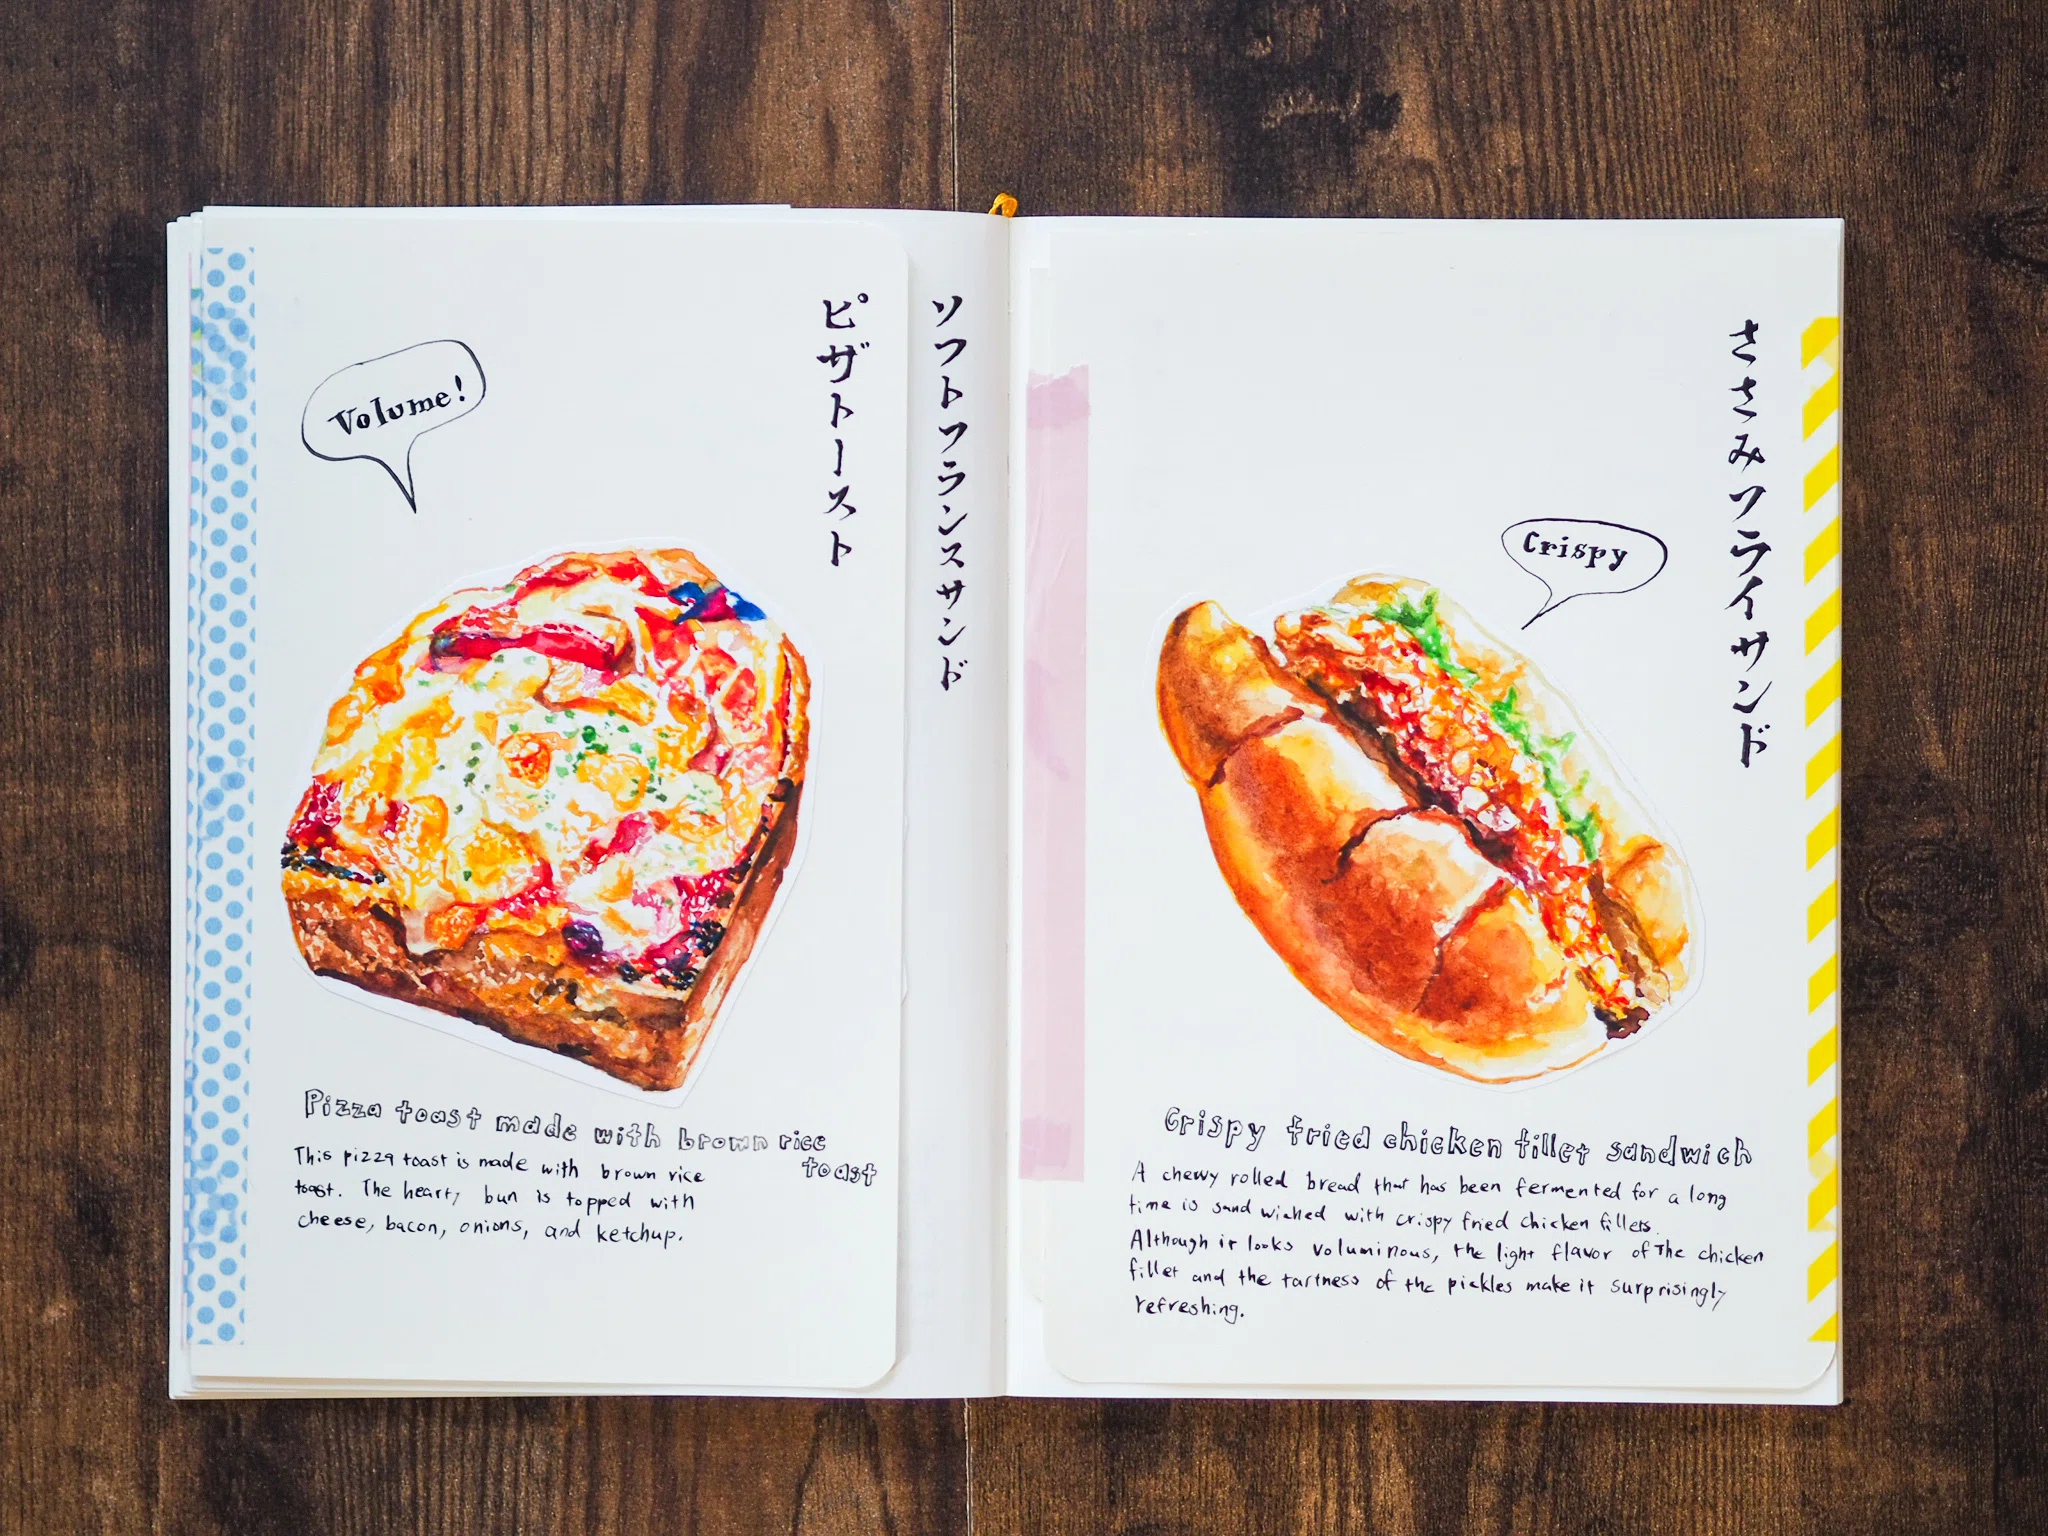 Volume!
ピザトースト
ソフトフランスサンド
Pizza toast made with brown rice
toast
This pizza toast is made with brown rice
toast. The hearty bun is topped with
cheese, bacon, onions, and ketchup.
ささみフライサンド
Crispy
Crispy fried chicken fillet sandwich
A chewy rolled bread that has been fermented for a long
time is sandwiched with crispy fried chicken fillets.
Although it looks voluminous, the light flavor of the chicken
fillet and the tartness of the pickles make it surprisingly
refreshing.